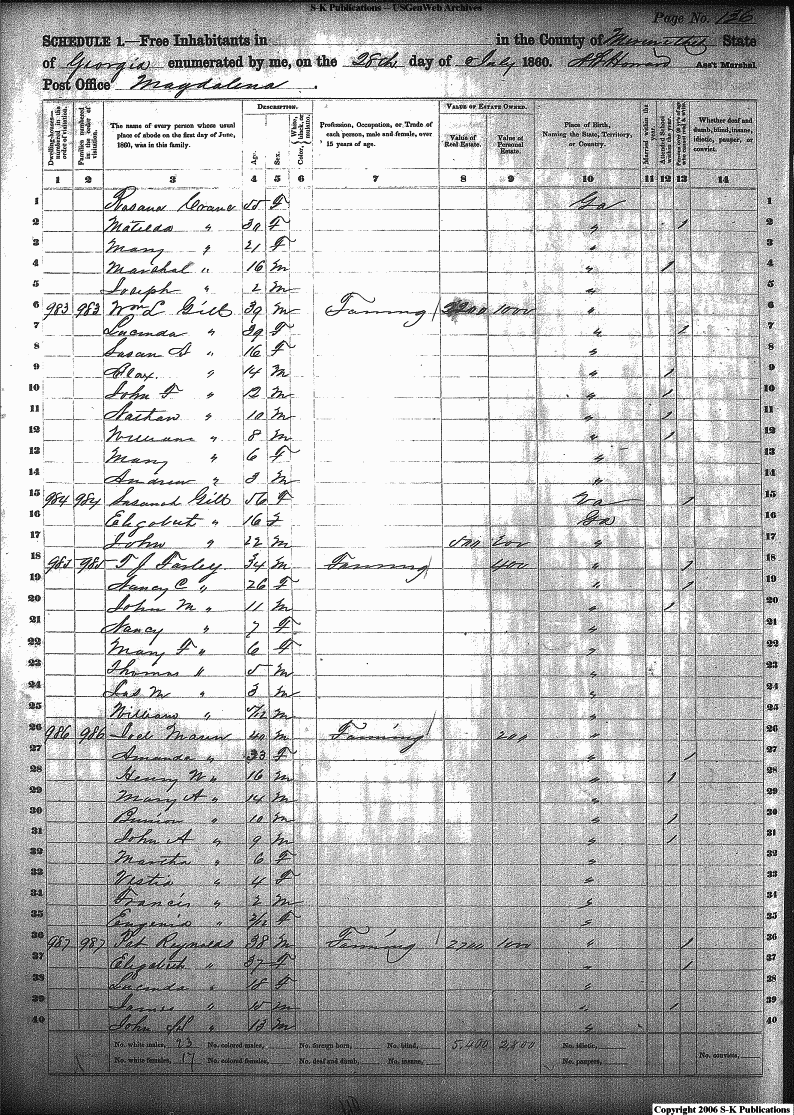 S-K Publications – USGenWeb Archives
Page No. 126
SCHEDULE 1.—Free Inhabitants in in the County of Meriwether State
of Georgia enumerated by me, on the 28th day of July 1860. Ass't Marshal
Post Office Magdalena.
DESCRIPTION. VALUE OF ESTATE OWNED.
Dwelling-houses—numbered in the order of visitation.
Families numbered in the order of visitation.
The name of every person whose usual place of abode on the first day of June, 1860, was in this family.
Age.
Sex.
Color, White, black, or mulatto.
Profession, Occupation, or Trade of each person, male and female, over 15 years of age.
Value of Real Estate.
Value of Personal Estate.
Place of Birth, Naming the State, Territory, or Country.
Married within the year.
Attended School within the year.
Whether deaf and dumb, blind, insane, idiotic, pauper, or convict.
1 2 3 4 5 6 7 8 9 10 11 12 13 14
1 Rosana 55 F Ga 1
2 Matilda " 30 F " / 2
3 Mary " 21 F " 3
4 Marshal " 16 M " / 4
5 Joseph " 2 M " 5
6 983 983 Wm L Gill 39 M Farming 1000 " 6
7 Lucinda " 39 F " / 7
8 Susan A " 16 F " 8
9 Alex. " 14 M " / 9
10 John F " 12 M " / 10
11 Nathan " 10 M " / 11
12 William " 8 M " / 12
13 Mary " 6 F " 13
14 Andrew " 3 M " 14
15 984 984 Susanah Gill 56 F Va / 15
16 " 16 F Ga 16
17 John " 22 M 500 200 " 17
18 985 985 T J Farley 34 M Farming 400 " / 18
19 Nancy C " 26 F " / 19
20 John M " 11 M " / 20
21 Nancy " 7 F " 21
22 Mary F " 6 F " 22
23 Thomas " 5 M " 23
24 Jas M " 3 M " 24
25 William " M " 25
26 986 986 Joel 40 M Farming 200 " 26
27 Amanda " 33 F " / 27
28 Henry W " 16 M " / 28
29 Mary A " 14 M " 29
30 " 10 M " / 30
31 John A " 9 M " / 31
32 Martha " 6 F " 32
33 Vestia " 4 F " 33
34 Francis " 2 M " 34
35 Eugenia " F " 35
36 987 987 Pat Reynolds 38 M Farming 2700 1000 " / 36
37 Elizabeth " 37 F " / 37
38 Lucinda " 18 F " 38
39 James " 15 M " / 39
40 John " 13 M " 40
No. white males, 23 No. colored males, No. foreign born, No. blind, 5,400 2,800 No. idiotic,
No. white females, 17 No. colored females, No. deaf and dumb, No. insane, No. paupers, No. convicts,
Copyright 2006 S-K Publications